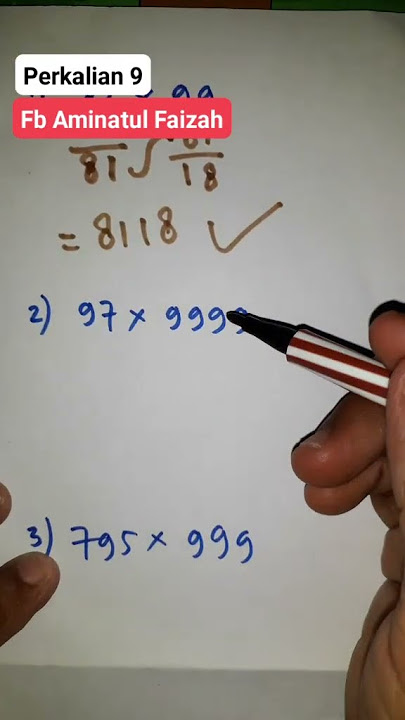 Perkalian 9
Fb Aminatul Faizah
81 18
= 8118 ✓
2) 97 x 9999
3) 795 x 999